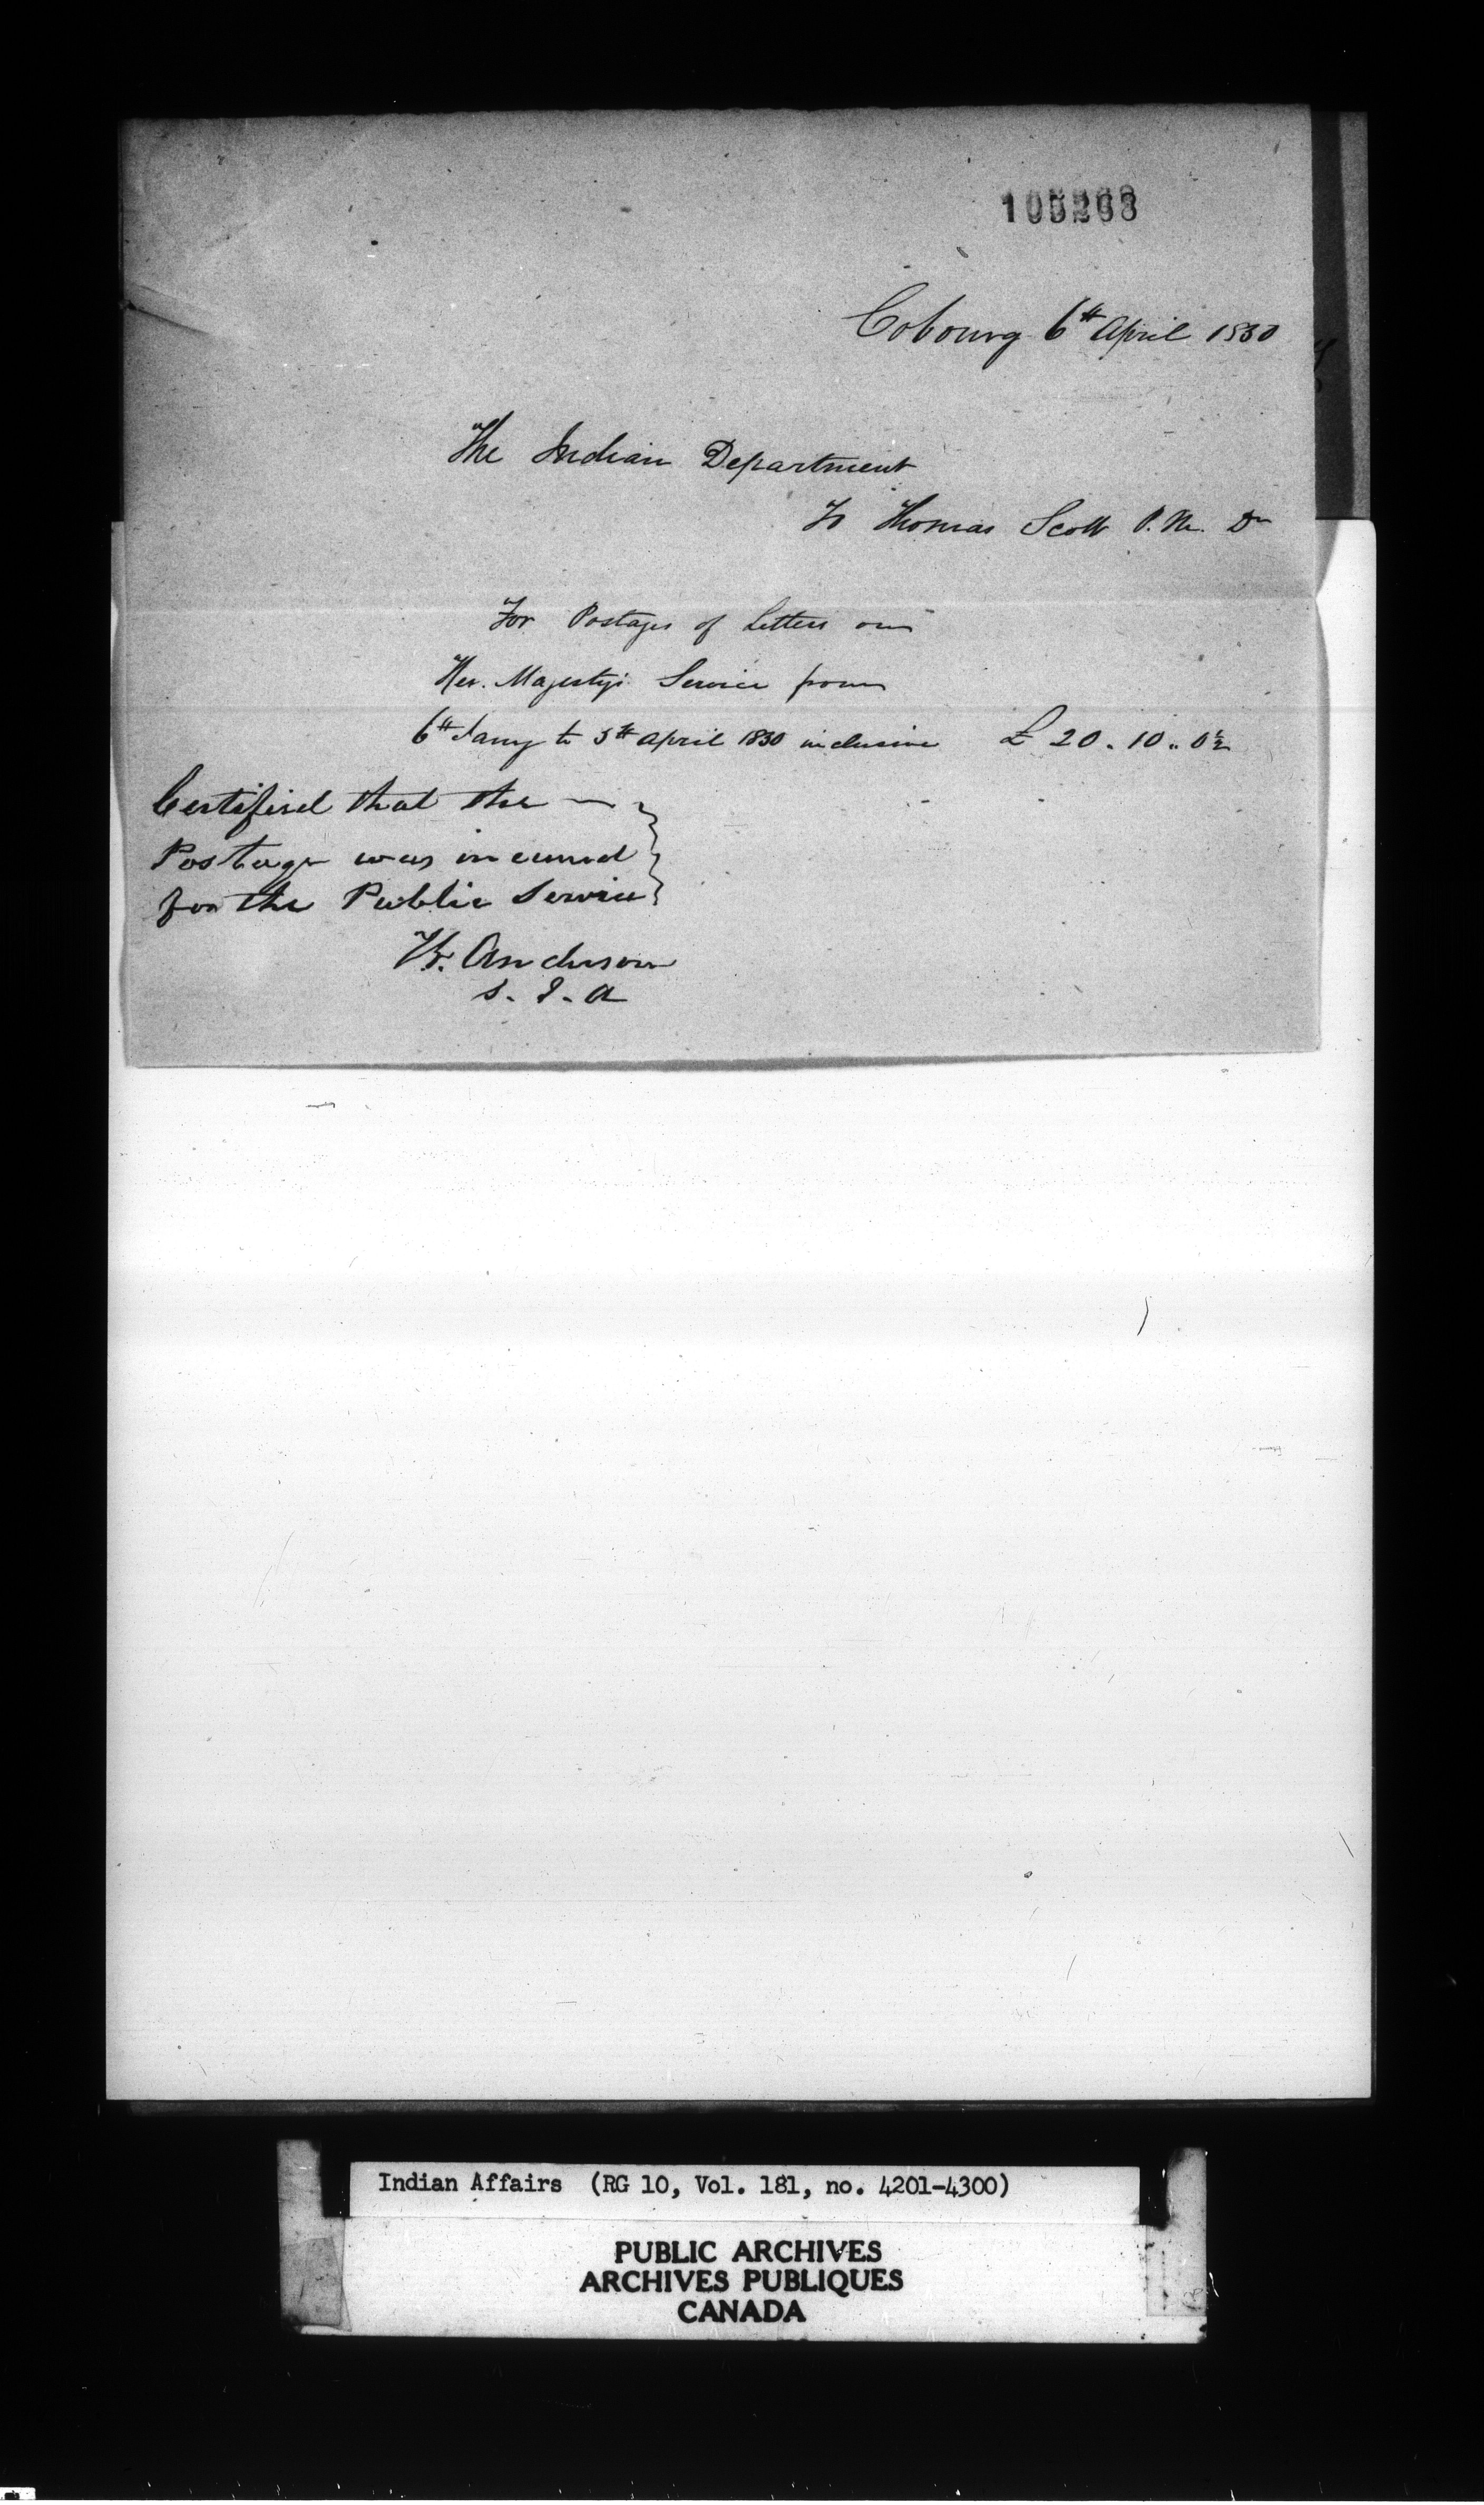 105268
Cobourg 6th April 1850
The Indian Department
To Thomas Scott P.M. Dr
For Postages of Letters on
Her. Majesty's Service from
6th Jany to 5th April 1850 inclusive £ 20. 10. 0½
Certified that the
Postage was incurred
for the Public Service
Anderson
S. I. A
Indian Affairs (RG 10, Vol. 181, no. 4201-4300)
PUBLIC ARCHIVES
ARCHIVES PUBLIQUES
CANADA